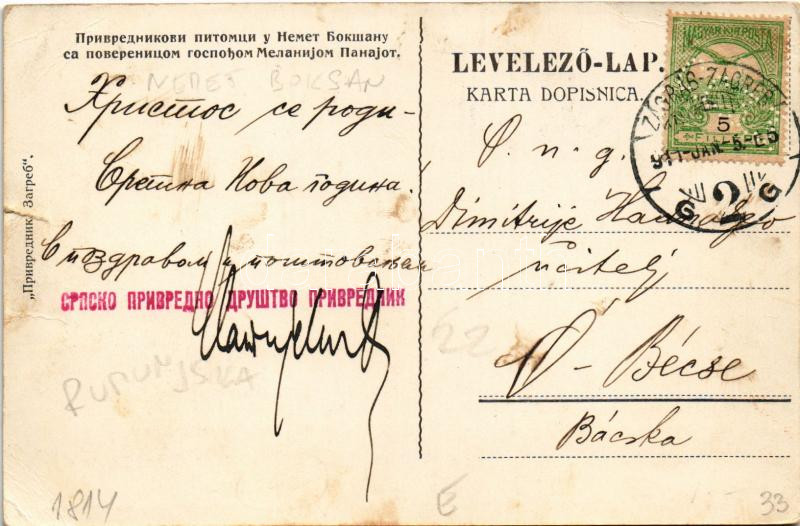 Привредникови питомци у Немет Бокшану
са повереницом госпођом Меланијом Панајот.
NEMET BOKŠAN
Христос се роди –
Сретна Нова година.
С поздравом и поштовањем
СРПСКО ПРИВРЕДНО ДРУШТВО ПРИВРЕДНИК
RUMUNJSKA
1814
„Привредник“, Загреб“.
LEVELEZŐ-LAP.
KARTA DOPISNICA.
MAGYAR KIR. POSTA
5
ZÁGRÁB-ZAGREB
911 JAN
2
G G
P. n. g.
Dimitrije
učitelj
22
Ó-Bécse
Bácska
E
33